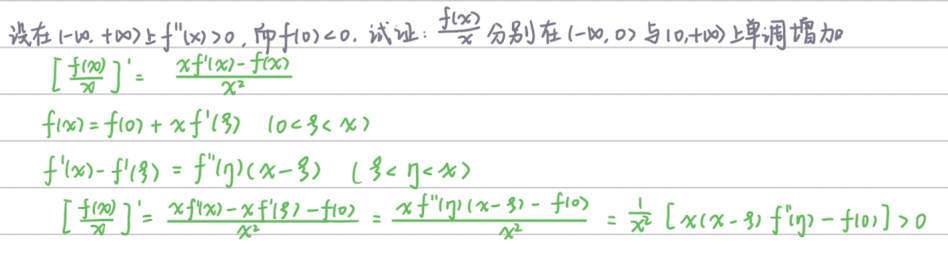 设在(-∞, +∞)上f''(x)>0, 而f(0)<0. 试证: f(x)/x 分别在(-∞, 0)与(0,+∞)上单调增加
[f(x)/x]' = (xf'(x)-f(x))/x²
f(x) = f(0) + xf'(ξ) (0<ξ<x)
f'(x)-f'(ξ) = f''(η)(x-ξ) (ξ<η<x)
[f(x)/x]' = (xf'(x)-xf'(ξ)-f(0))/x² = (xf''(η)(x-ξ)-f(0))/x² = 1/x² [x(x-ξ)f''(η)-f(0)]>0